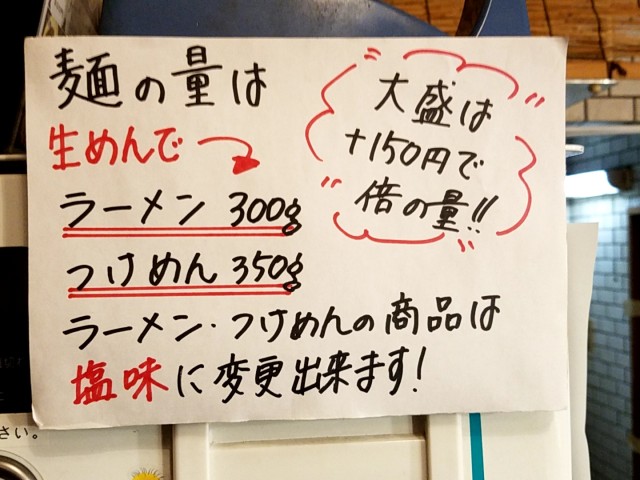 麺の量は
生めんで
ラーメン 300g
つけめん 350g
ラーメン・つけめんの商品は
塩味に変更出来ます!
大盛は
+150円で
倍の量!!
さい。